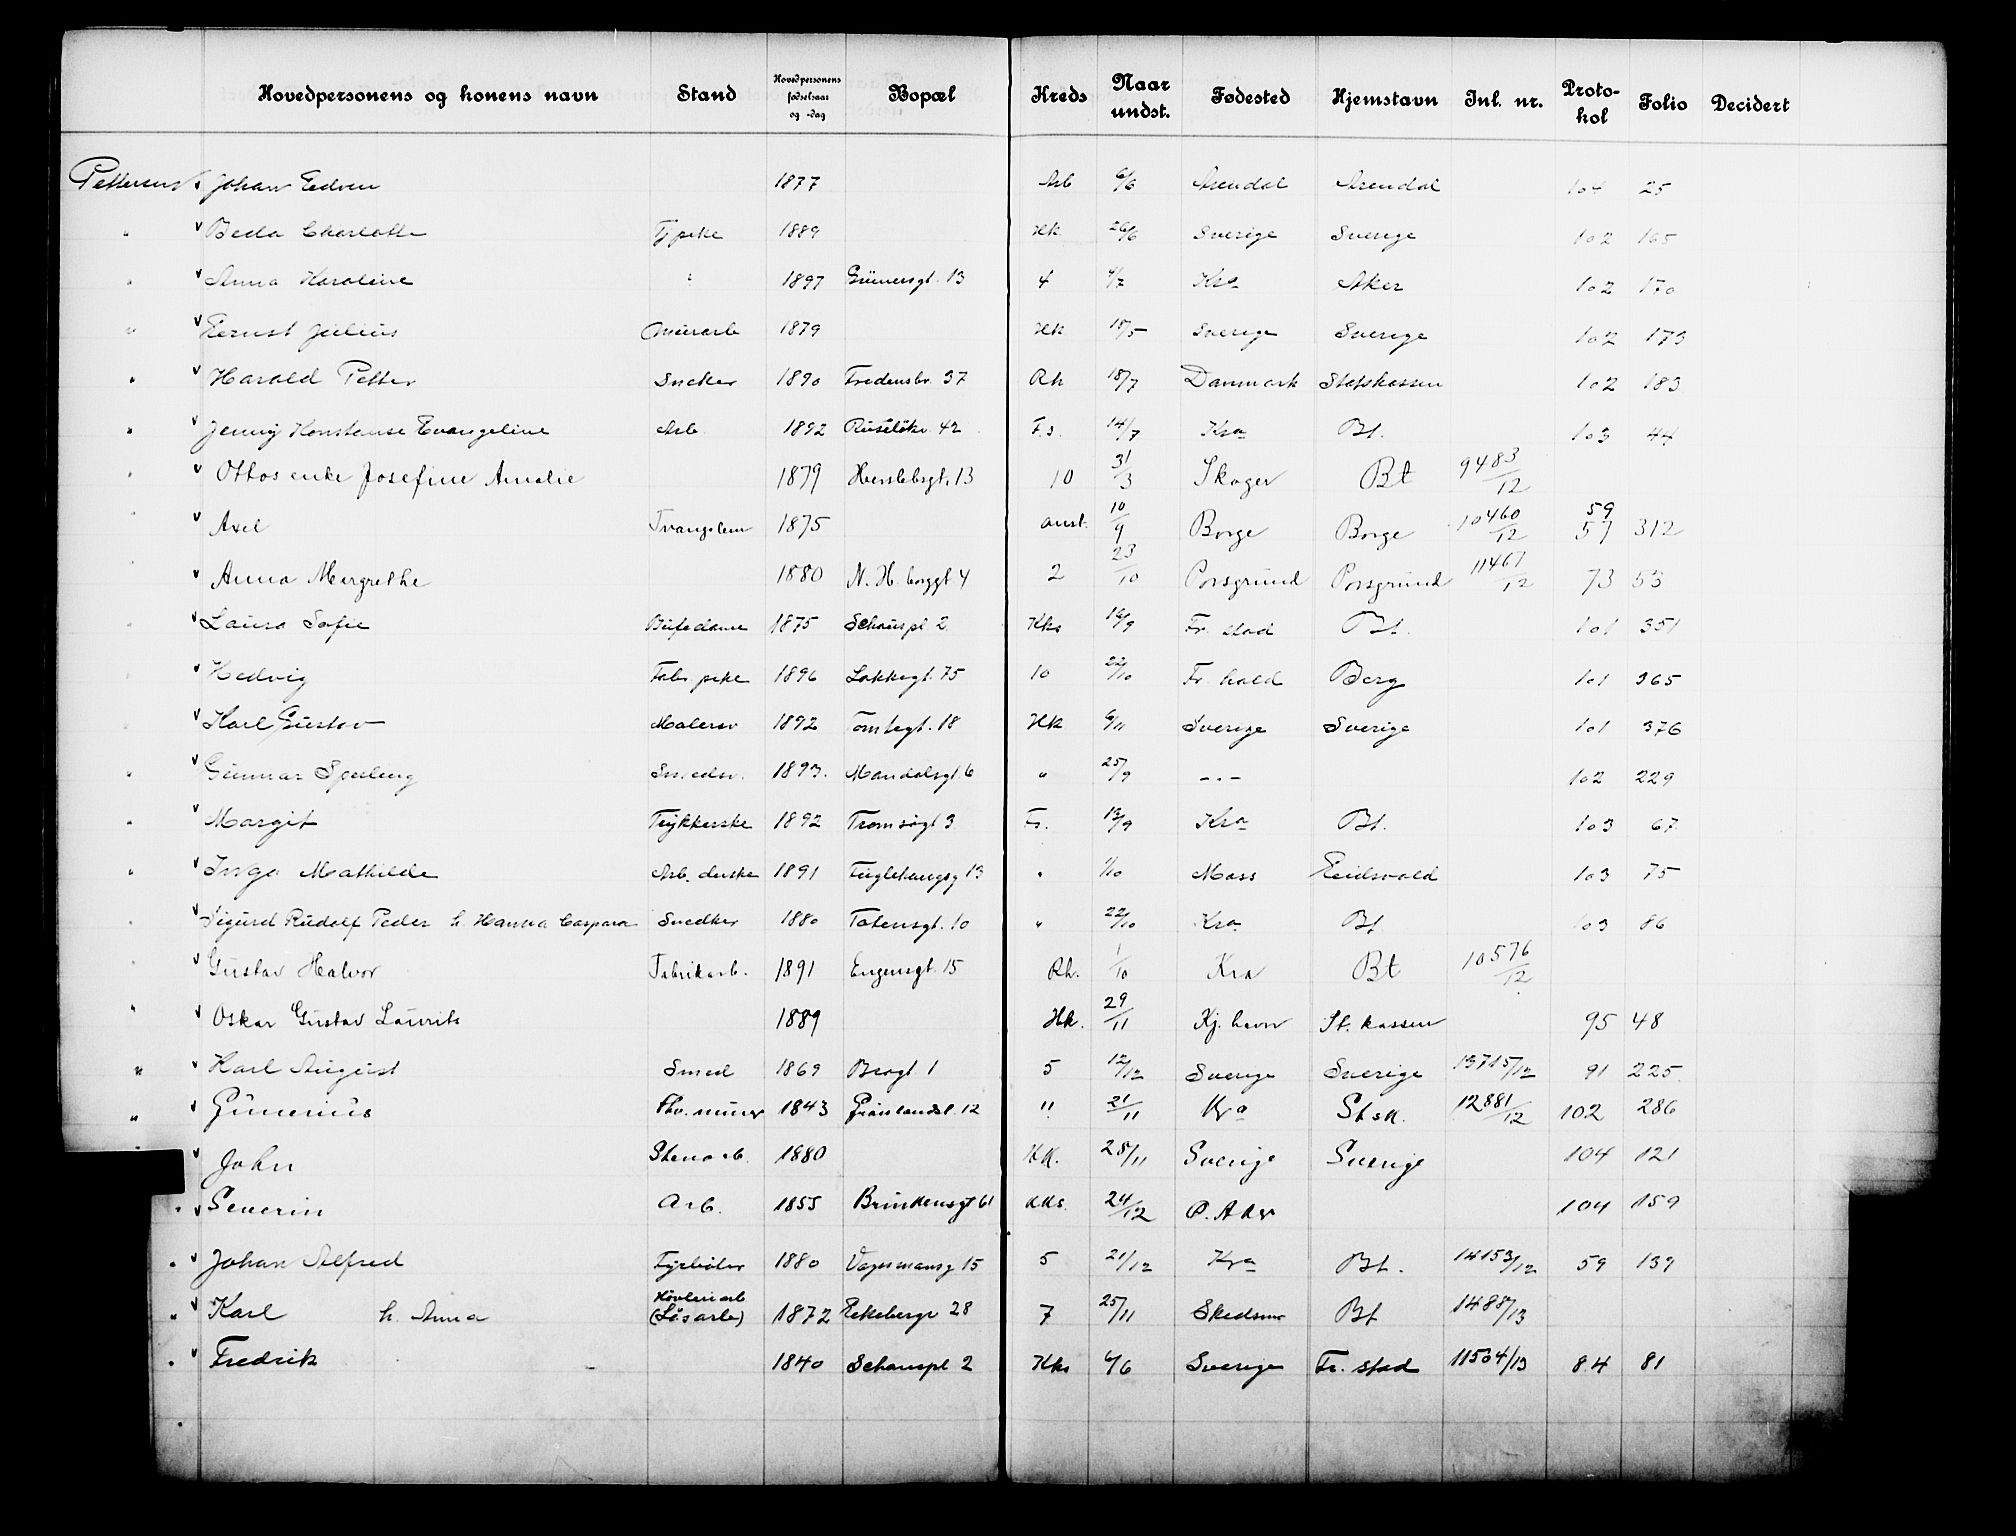 Hovedpersonens og konens navn Stand Hovedpersonens fødselsaar og -dag Bopæl Kreds Naar undst. Fødested Hjemstavn Inl. nr. Protokol Folio Decidert
Pettersen Johan Edvin 1877 Arb 6/6 Arendal Arendal 104 25
" Beda Charlotte Tj. pike 1889 Hk 26/6 Sverige Sverige 102 165
" Anna Karoline " 1897 Grünersgt. 13 4 4/7 Kra Aker 102 170
" Ernst Julius Murarb 1879 Hk 15/5 Sverige Sverige 102 173
" Harald Petter Sneker 1890 Fredensbr. 37 Rh 18/7 Danmark Statskassen 102 183
" Jenny Konstanse Evangeline Arb. 1892 Ruseløkv. 42 F.s. 14/7 Kra Bt. 103 44
" Ottos enke Josefine Amalie 1879 Herslebsgt. 13 10 31/3 Skoger Bt 9483/12
" Axel Tvangslem 1875 anst. 10/9 Borge Borge 10460/12 59 57 312
" Anna Margrethe 1880 N. H. berggt 4 2 23/10 Porsgrund Porsgrund 11461/12 73 53
" Laura Sofie Bufedame 1875 Schouspl. 2 Kks 16/9 Fr. stad Bt. 101 351
" Hedvig Fabr. pike 1896 Løkkegt. 75 10 22/10 Fr. hald Berg 101 365
" Karl Gustav Malersv 1892 Tomtegt. 18 Hk 6/11 Sverige Sverige 101 376
" Gunnar Sperling Smedsv. 1893. Mandalsgt. 6 " 25/9 - " - 102 229
" Margit Trykkerske 1892 Tromsøgt 3 Fr. 13/9 Kra Bt. 103 67
" Inga Mathilde Arb. derske 1891 Fuglehaugsg 13 " 1/10 Moss Eidsvold 103 75
" Sigurd Rudolf Peder h. Hanna Caspara Snedker 1880 Totensgt. 10 " 22/10 Kra Bt 103 86
" Gustav Halvor Fabrikarb. 1891 Engensgt. 15 Rh. 1/10 Kra Bt 10576/12
" Oskar Gustav Laurits 1889 Hk. 29/11 Kj. havn St. kassen 95 48
" Karl August Smed 1869 Brogt. 1 5 12/12 Sverige Sverige 13715/12 91 225
" Gunerius Fhv. murer 1843 Grønlandsl. 12 " 21/11 Kra St. sk. 12881/12 102 286
John Stenarb. 1880 HK. 28/11 Sverige Sverige 104 121
" Severin Arb. 1855 Brinkensgt 61 KKs. 24/12 P. Aker 104 159
" Johan Alfred Fyrbøter 1880 Vognmansg 15 5 21/12 Kra Bt. 14153/12 59 139
" Karl h. Anna Høvleriarb (Løsarb) 1872 Ekebergv 28 7 25/11 Skedsmo Bt 1485/13
" Fredrik 1840 Schouspl 2 Kks 4/6 Sverige Fr. stad 11504/13 84 81